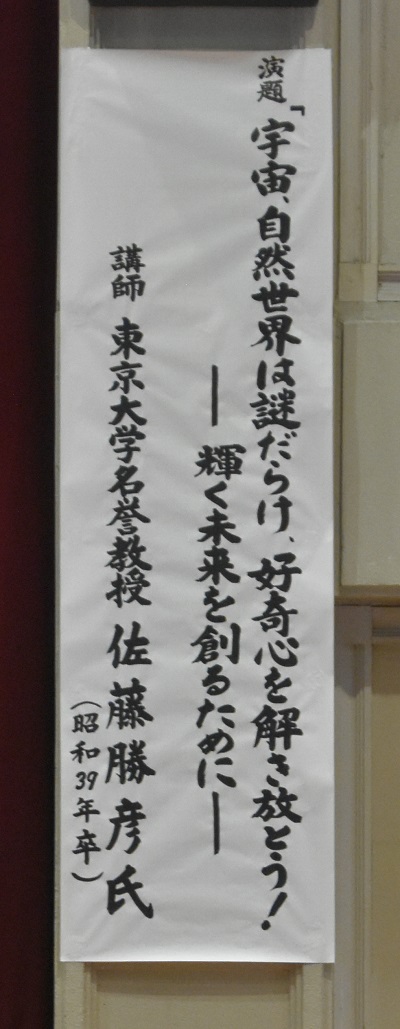 演題「宇宙、自然世界は謎だらけ、好奇心を解き放とう！
― 輝く未来を創るために ―
講師 東京大学名誉教授 佐藤勝彦氏
（昭和39年卒）